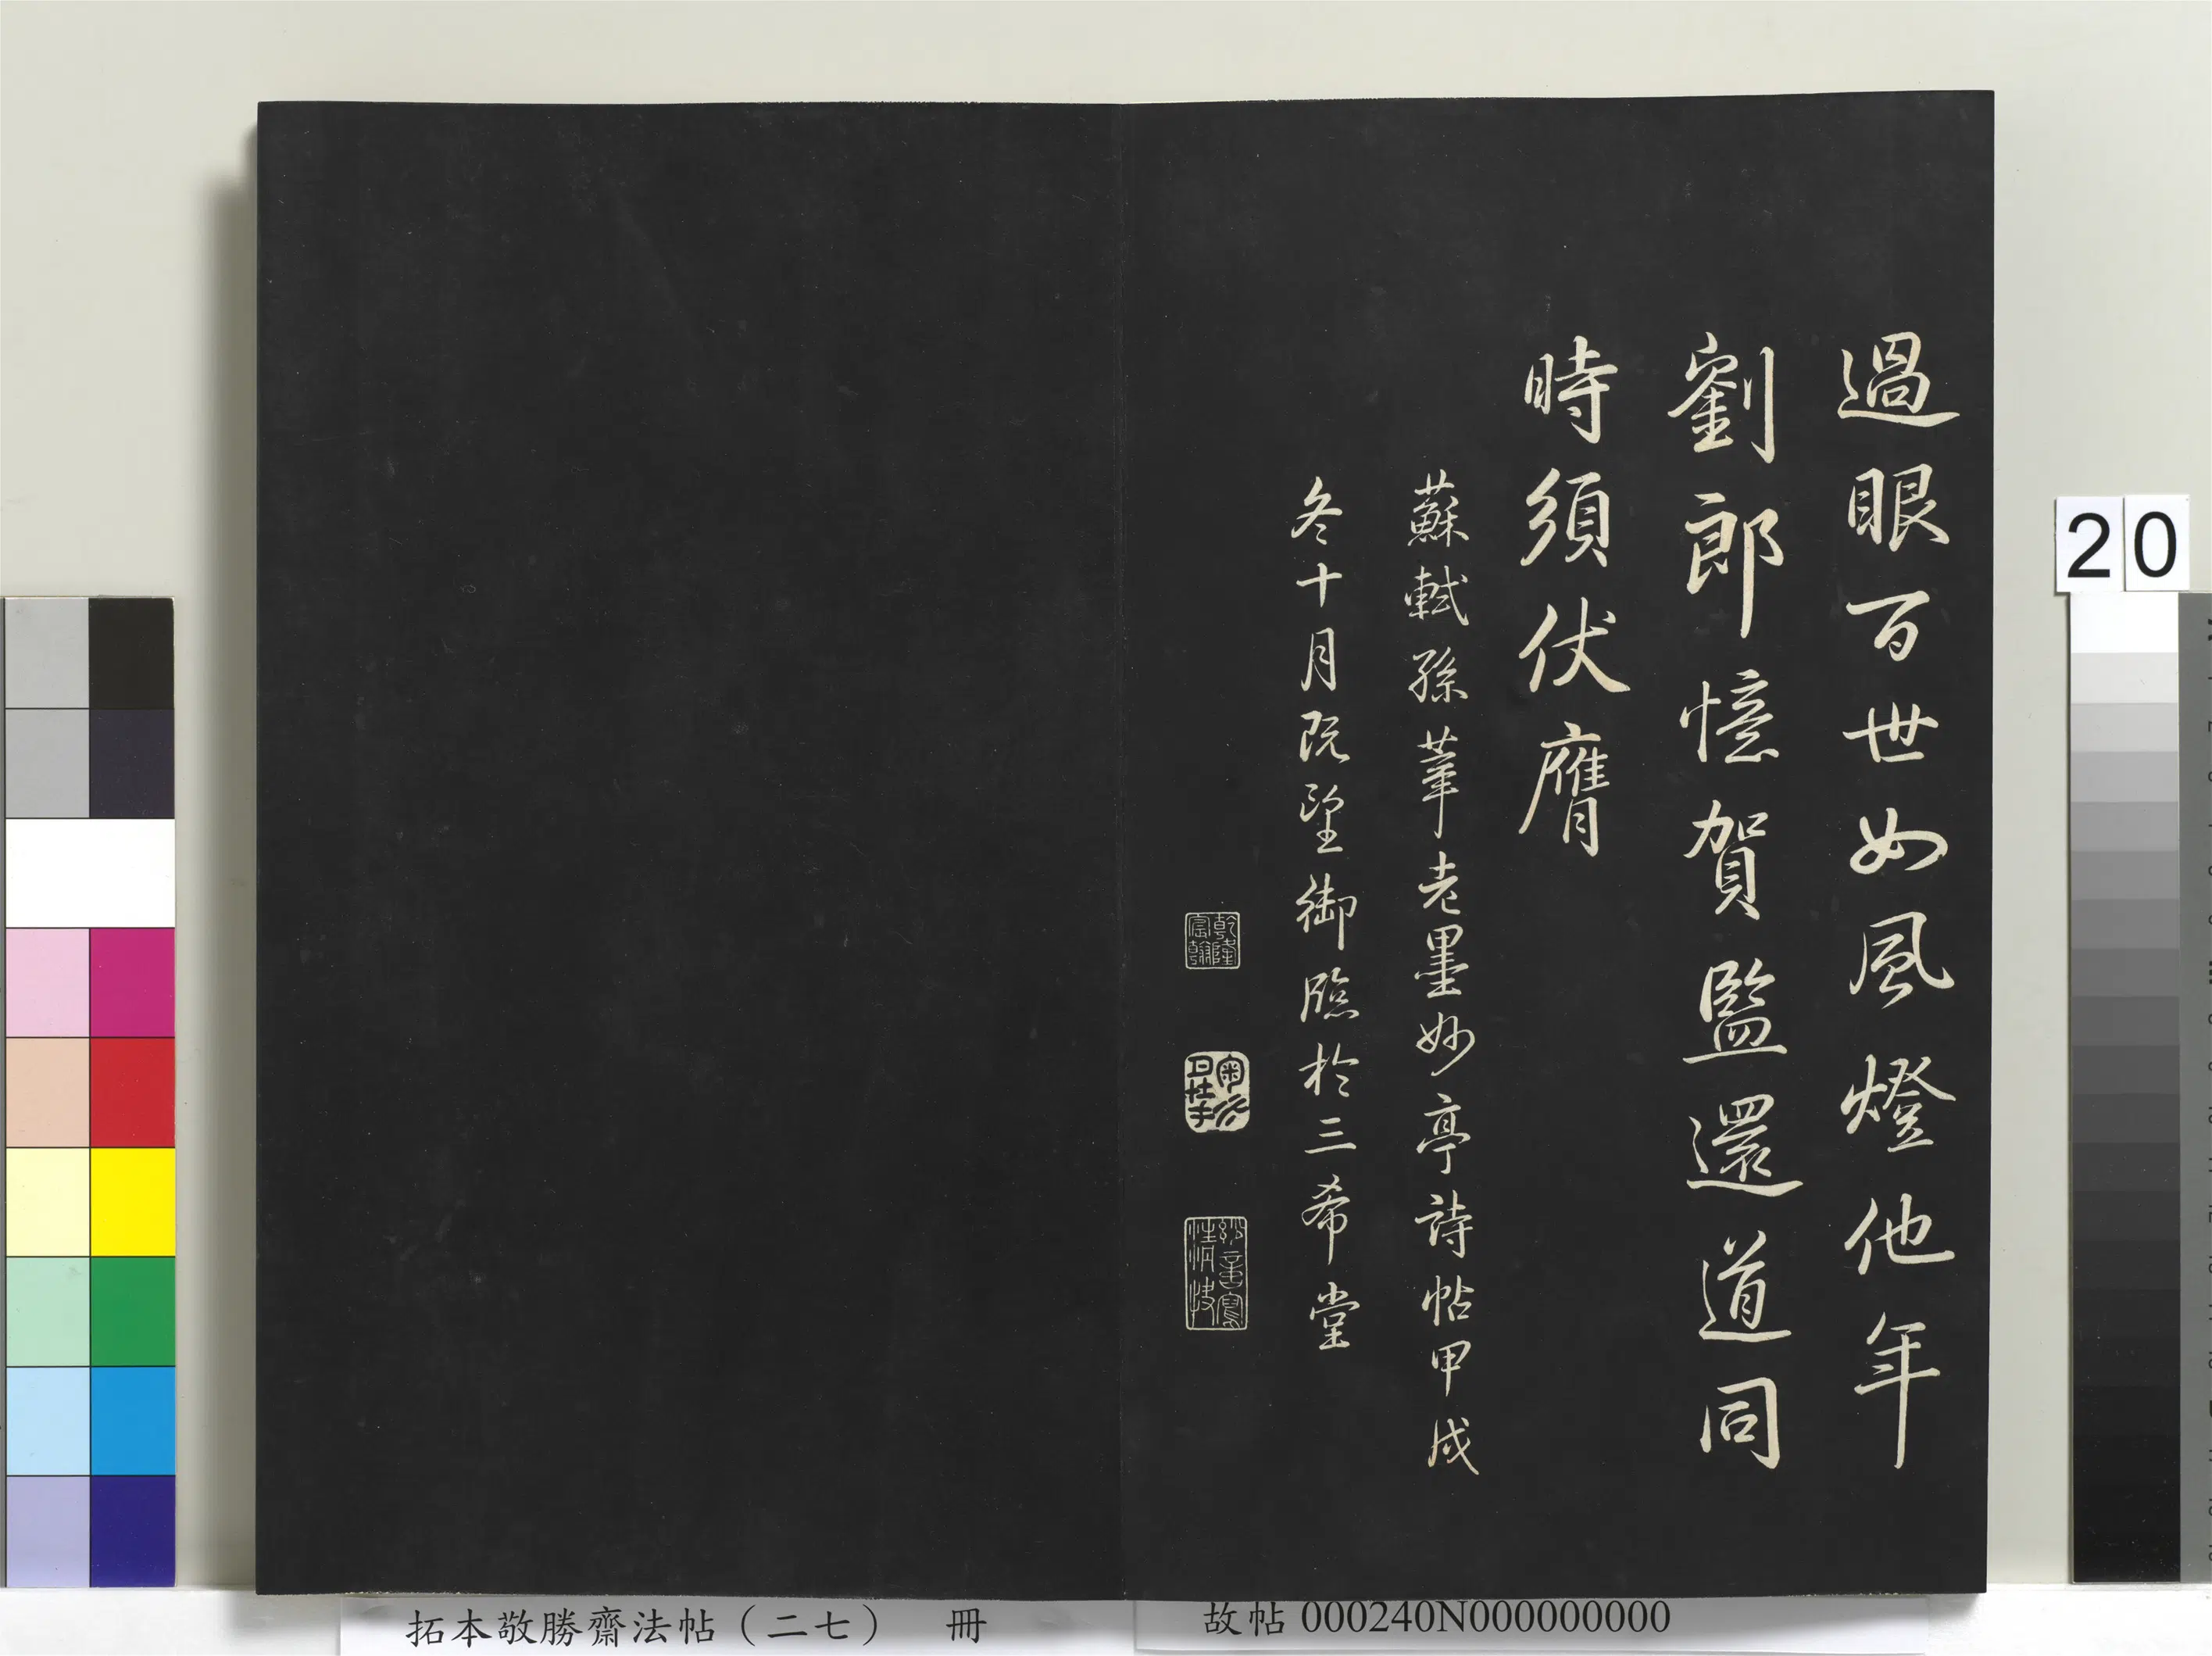 過眼百世如風燈他年
劉郎憶賀監還道同
時須伏膺
蘇軾孫莘老墨妙亭詩帖甲戌
冬十月既望御臨於三希堂
乾隆
宸翰
拓本敬勝齋法帖（二七） 冊
故帖 000240N000000000
20